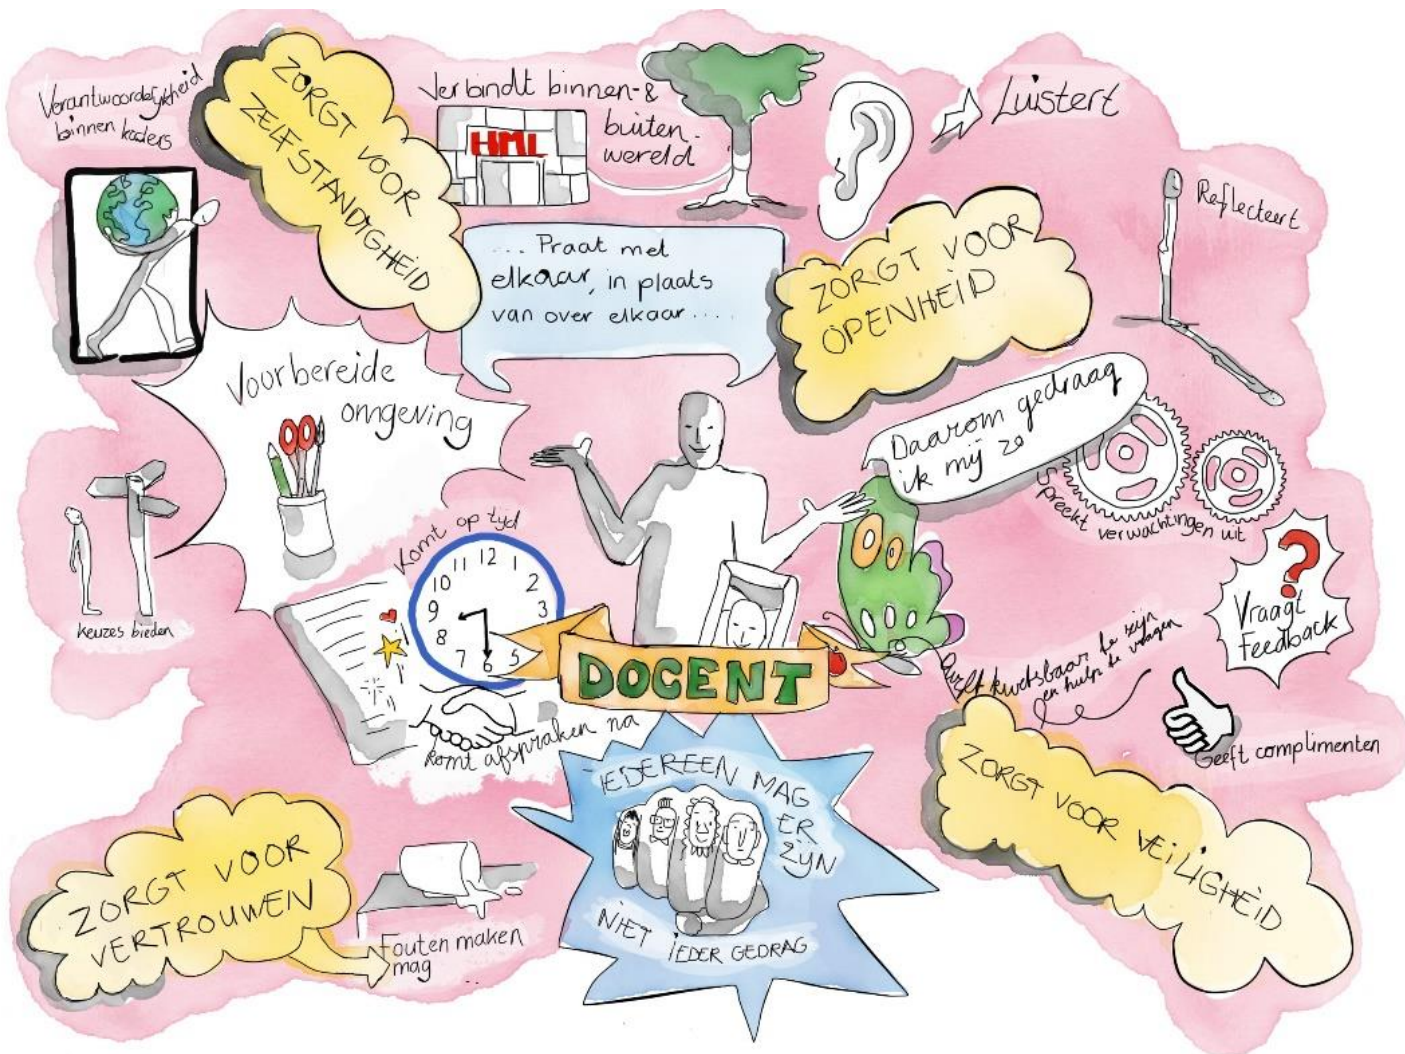 Verantwoordelijkheid
binnen kaders
ZORGT VOOR
ZELFSTANDIGHEID
Verbindt binnen- &
buiten-
wereld
HML
Luistert
Reflecteert
... Praat met
elkaar, in plaats
van over elkaar ....
ZORGT VOOR
OPENHEID
Voorbereide
omgeving
Daarom gedraag
ik mij zo
Spreekt verwachtingen uit
keuzes bieden
Komt op tijd
12
1
2
3
5
6
7
8
9
10
11
?
Vraagt
Feedback
Durft kwetsbaar te zijn
en hulp te vragen
DOCENT
komt afspraken na
Geeft complimenten
ZORGT VOOR VEILIGHEID
IEDEREEN MAG
ER
ZIJN
NIET IEDER GEDRAG
ZORGT VOOR
VERTROUWEN
Fouten maken
mag